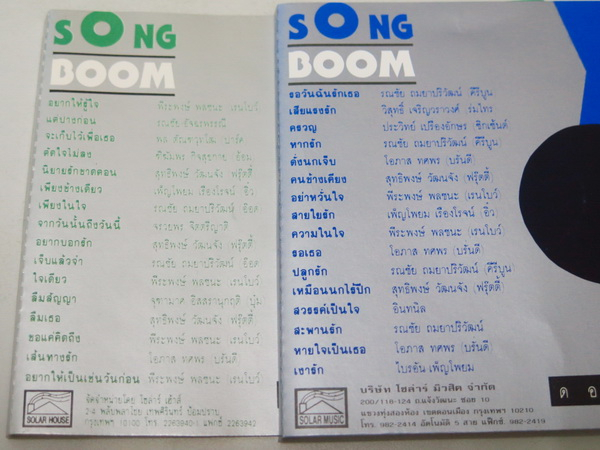 SONG
BOOM
อยากให้รู้ใจ พีระพงษ์ พลชนะ เรนโบว์
แต่ปางก่อน รณชัย
จะเก็บไว้เพื่อเธอ พล
ตัดใจไม่ลง
นิยายรักขาดตอน สุทธิพงษ์ วัฒนจัง (ฟรุ๊ตตี้)
เพียงข้างเดียว เพ็ญโพยม เรืองโรจน์ (อิ๋ว)
เพียงในใจ รณชัย ถมยาปริวัฒน์ (อ๊อด)
จากวันนั้นถึงวันนี้ จรวยพร จิตตรีญาติ
อยากบอกรัก สุทธิพงษ์ วัฒนจัง (ฟรุ๊ตตี้)
เจ็บแล้วจำ รณชัย ถมยาปริวัฒน์ (อ๊อด)
ใจเดียว พีระพงษ์ พลชนะ (เรนโบว์)
ลืมสัญญา จุฑามาศ อิสสรานุกฤติ ปุ้ม
ลืมเธอ สุทธิพงษ์ วัฒนจัง (ฟรุ๊ตตี้)
ขอแค่คิดถึง พีระพงษ์ พลชนะ (เรนโบว์)
เส้นทางรัก โอภาส ทศพร (บรั่นดี)
อยากให้เป็นเช่นวันก่อน พีระพงษ์ พลชนะ เรนโบว์
SOLAR HOUSE
จัดจำหน่ายโดย โซล่าร์ เฮ้าส์
2-4 พลับพลาไชย เทพศิรินทร์ ป้อมปราบ
กรุงเทพฯ 10100 โทร. 2263940-1 แฟกซ์ 2263942
SONG
BOOM
ขอวันฉันรักเธอ รณชัย ถมยาปริวัฒน์ (คีรีบูน)
เสียแรงรัก วิสุทธิ์ เจริญวราวงศ์ ร่มไทร
ครวญ ประวิทย์ เปรื่องอักษร ซิกเซ้นต์
หากรัก รณชัย ถมยาปริวัฒน์ (คีรีบูน)
ดั่งนกเจ็บ โอภาส ทศพร (บรั่นดี)
คนข้างเคียง สุทธิพงษ์ วัฒนจัง (ฟรุ๊ตตี้)
อย่าหวั่นใจ พีระพงษ์ พลชนะ (เรนโบว์)
สายใยรัก เพ็ญโพยม เรืองโรจน์ (อิ๋ว)
ความในใจ พีระพงษ์ พลชนะ (เรนโบว์)
ขอเธอ โอภาส ทศพร (บรั่นดี)
ปลูกรัก รณชัย ถมยาปริวัฒน์ (คีรีบูน)
เหมือนนกไร้ปีก สุทธิพงษ์ วัฒนจัง (ฟรุ๊ตตี้)
สวรรค์เป็นใจ อินทนิล
สะพานรัก รณชัย ถมยาปริวัฒน์
หายใจเป็นเธอ โอภาส ทศพร (บรั่นดี)
เงารัก ไบรอัน เพ็ญโพยม
SOLAR MUSIC
บริษัท โซล่าร์ มิวสิค จำกัด
200/118-124 ถ.แจ้งวัฒนะ ซอย 10
แขวงทุ่งสองห้อง เขตดอนเมือง กรุงเทพฯ 10210
โทร. 982-2414 อัตโนมัติ 5 สาย แฟ็กซ์. 982-2419
ด อ